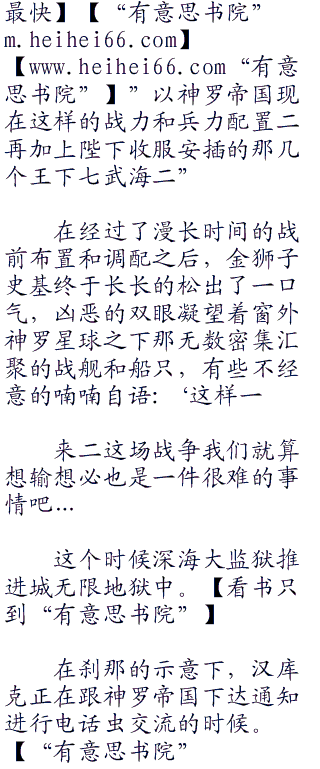 最快】【“有意思书院”
m.heihei66.com】
【www.heihei66.com“有意
思书院”】”以神罗帝国现
在这样的战力和兵力配置二
再加上陛下收服安插的那几
个王下七武海二”
在经过了漫长时间的战
前布置和调配之后，金狮子
史基终于长长的松出了一口
气，凶恶的双眼凝望着窗外
神罗星球之下那无数密集汇
聚的战舰和船只，有些不经
意的喃喃自语:‘这样一
来二这场战争我们就算
想输想必也是一件很难的事
情吧…
这个时候深海大监狱推
进城无限地狱中。【看书只
到“有意思书院”】
在刹那的示意下，汉库
克正在跟神罗帝国下达通知
进行电话虫交流的时候。
【“有意思书院”